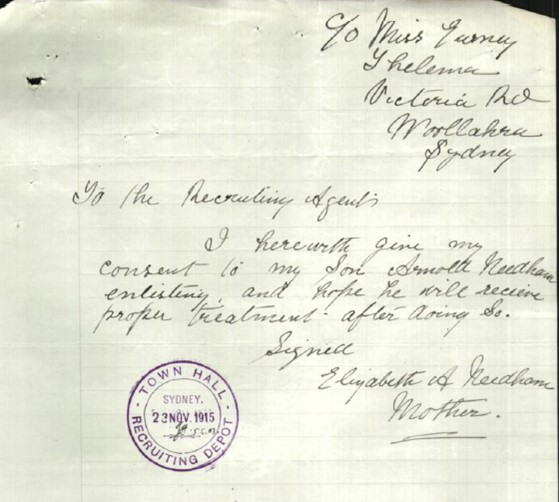 c/o Miss Gurney
Thelema
Victoria Rd
Woollahra
Sydney
To the Recruiting Agents
I herewith give my
consent to my Son Arnold Needham
enlisting, and hope he will recieve
proper treatment after doing so.
Signed
Elizabeth A Needham
Mother.
TOWN HALL
SYDNEY.
23 NOV. 1915
RECRUITING DEPOT